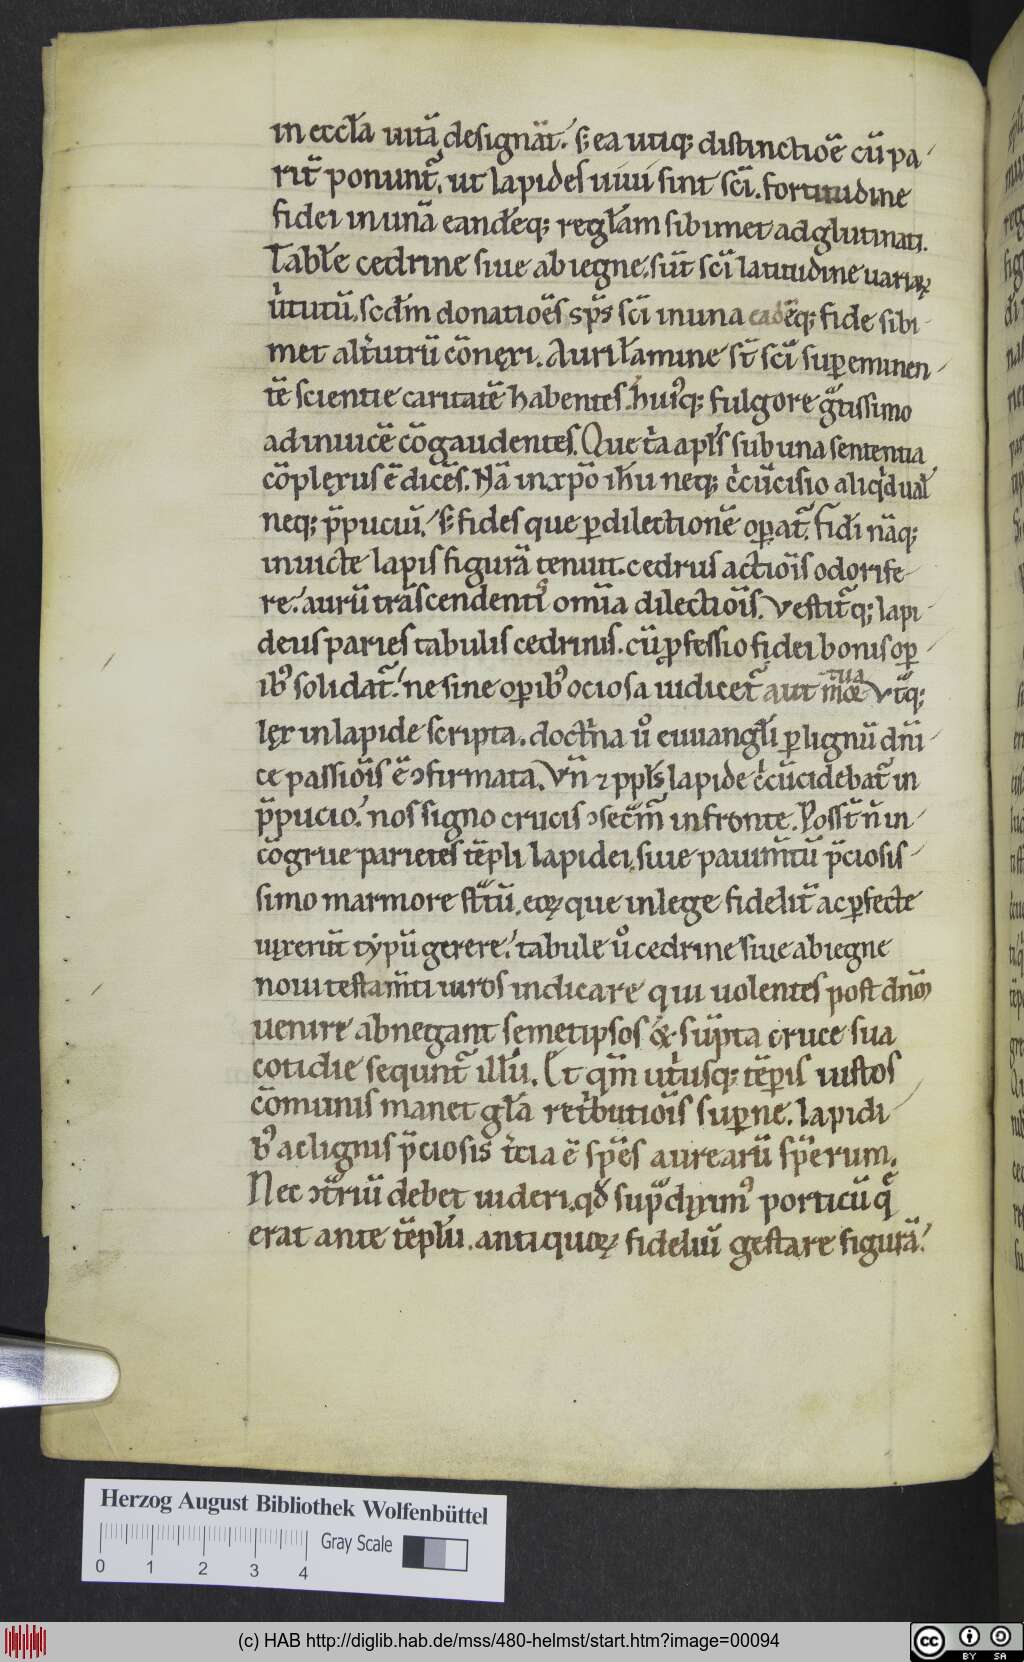 in eccl̄a uitā designāt. s; ea utiq; distinctiōe cū pa
rit̄ ponunt̄, ut lapides uiui sint sc̄i. fortitudine
fidei in unā eandēq; regl̄am sibimet adglutinati.
Tabl̄e cedrine siue abiegne, sūt sc̄i latitudine uariaꝝ
ūtutū, scd̄m donatiōes sp̄s sc̄i in una eadēq; fide sibi
met alt̄utrū cōnęxi. Auri l̄amine st̄ sc̄i supeminen
tē scientie caritatē habentes. huiꝰq; fulgore gͣtissimo
ad inuicē cōgaudentes. Que t̄a apl̄s sub una sententia
cōplęxus ē dicēs. Nā in xp̄o ih̄u neq; c̄cūcisio aliqͥd ual̄
neq; p̄puciū. s; fides que ꝑ dilectionē oꝑat̄. fidi nāq;
inuicte lapis figurā tenuit. cedrus actiōis odorife
re. aurū trāscendentiꝰ om̄ia dilectiōis. Vestit̄q; lapi
deus paries tabulis cedrinis. cū ꝓfessio fidei bonis oꝑ
ibꝰ solidat̄. ne sine oꝑibꝰ ociosa uidicet̄ aut mortua Vt̄q;
lęx in lapide scripta. doctͥna ūo euuangl̄i ꝑ lignū dn̄i
ce passiōis ē ↄfirmata. Vn̄ ⁊ ppl̄s lapide c̄cūcidebat̄ in
p̄pucio. nos signo crucis ↄsec̄m̄ in fronte. Poss̄t n̄ in
cōgrue parietes tēpli lapidei, siue pauim̄tū p̄ciosis
simo marmore stͣtū, eoꝝ que in lege fidelit̄ ac ꝑfecte
uixerūt typū gerere. tabule ūo cedrine siue abiegne
noui testam̄ti uiros indicare qui uolentes post dn̄m
uenire abnegant semetipsos & sūpta cruce sua
cotidie sequnt̄ illū. Et qm̄ utͥusq; tēꝑis iustos
cōmunis manet gl̄a retͥbutiōis suꝑne. lapidi
bꝰ ac lignis p̄ciosis t̄cia ē spēs aurearū spērum.
Nec ↄtͣriū debet uideri, qđ supͣ dixim̄ꝰ porticū q̄
erat ante tēpl̄u. antiquoꝝ fideliū gestare figurā.
Herzog August Bibliothek Wolfenbüttel
Gray Scale
0 1 2 3 4
(c) HAB http://diglib.hab.de/mss/480-helmst/start.htm?image=00094
cc BY SA